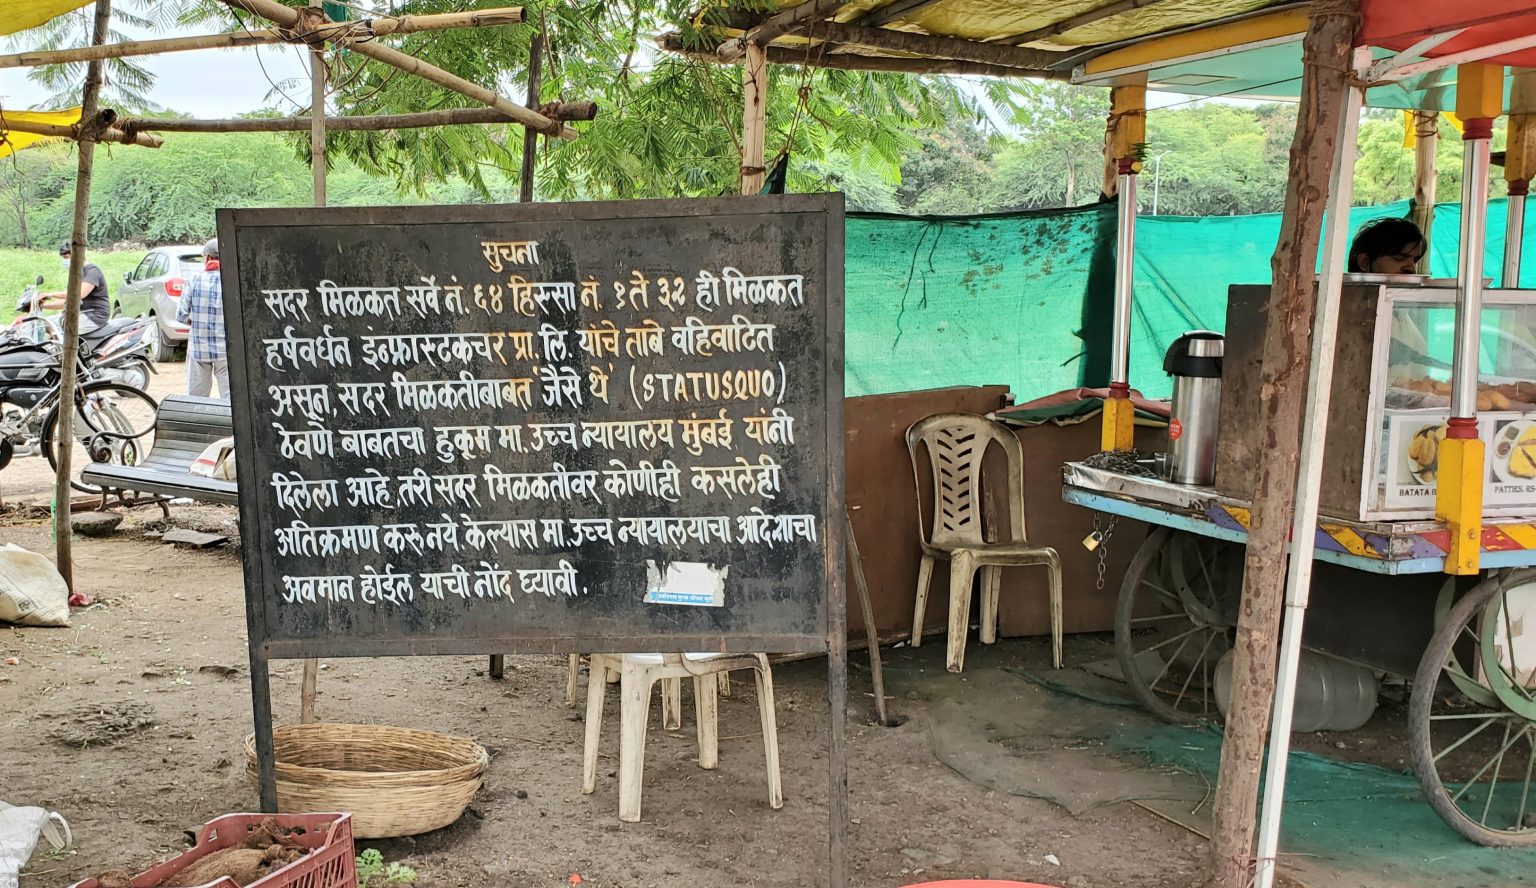 सुचना
सदर मिळकत सर्वे नं. ६४ हिस्सा नं. १ ते ३२ ही मिळकत
हर्षवर्धन इंन्फ्रास्टकचर प्रा. लि. यांचे ताबे वहिवाटित
असुन, सदर मिळकतीबाबत 'जैसे थे' (STATUSQUO)
ठेवणे बाबतचा हुकूम मा. उच्च न्यायालय मुंबई यांनी
दिलेला आहे तरी सदर मिळकतीवर कोणीही कसलेही
अतिक्रमण करू नये केल्यास मा. उच्च न्यायालयाचा आदेशाचा
अवमान होईल याची नोंद घ्यावी.
BATATA
PATTIES. RS